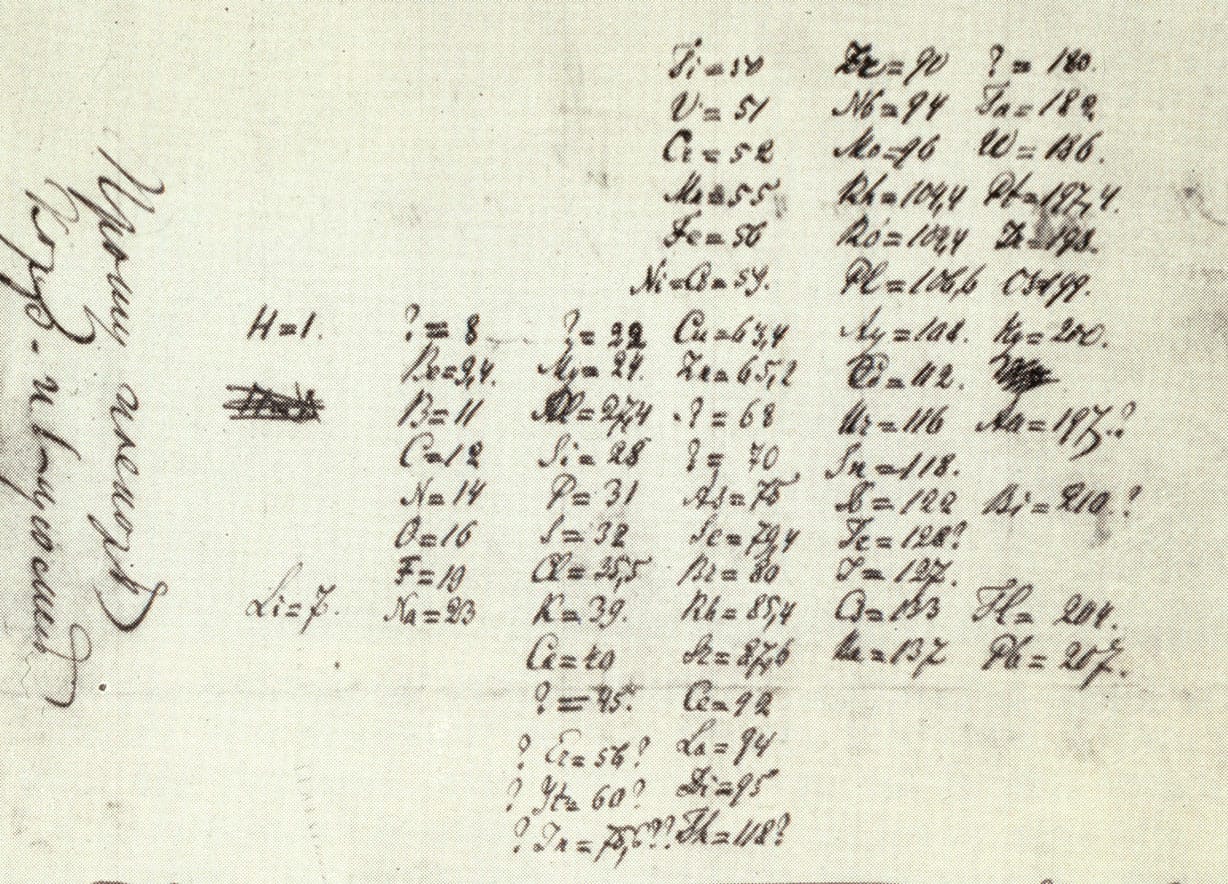 Ti=50 Zr=90 ?=180.
V=51 Nb=94 Ta=182.
Cr=52 Mo=96 W=186.
Mn=55 Rh=104,4 Pt=197,4.
Fe=56 Ru=104,4 Ir=198.
Ni=Co=59. Pl=106,6 Os=199.
H=1. ?=8 ?=22 Cu=63,4 Ag=108. Hg=200.
Be=9,4. Mg=24. Zn=65,2 Cd=112.
B=11 Al=27,4 ?=68 Ur=116 Au=197.?
C=12 Si=28 ?=70 Sn=118.
N=14 P=31 As=75 Sb=122 Bi=210.?
O=16 S=32 Se=79,4 Te=128?
F=19 Cl=35,5 Br=80 J=127.
Li=7. Na=23 K=39. Rb=85,4 Cs=133 Tl=204.
Ca=40 Sr=87,6 Ba=137 Pb=207.
?=45. Ce=92
? Er=56? La=94
? Yt=60? Di=95
? In=75,6?? Th=118?